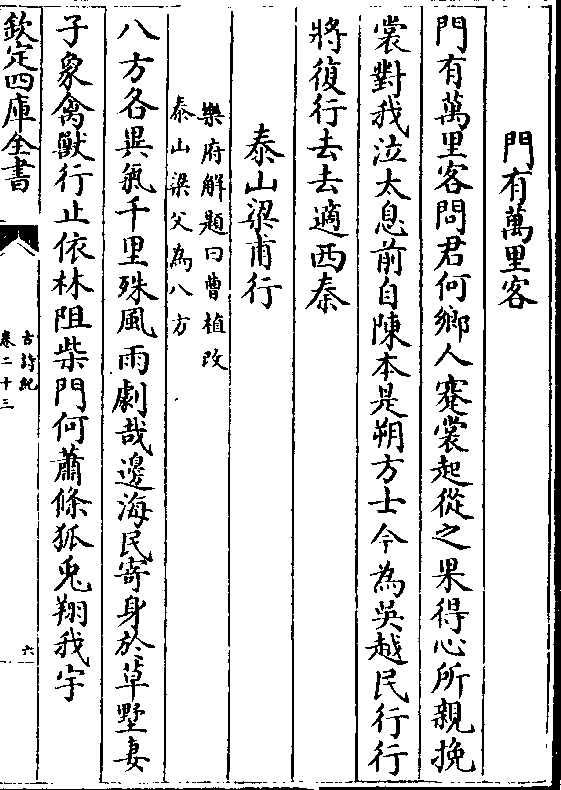 門有萬里客
門有萬里客問君何鄉人蹇裳起從之果得心所親挽
裳對我泣太息前自陳本是朔方士今為吳越民行行
將復行去去適西秦
泰山梁甫行
樂府解題曰曹植改
泰山梁父為八方
八方各異氣千里殊風雨劇哉邊海民寄身於草墅妻
子象禽獸行止依林阻柴門何蕭條狐兎翔我宇
欽定四庫全書
古詩紀
卷二十三
六